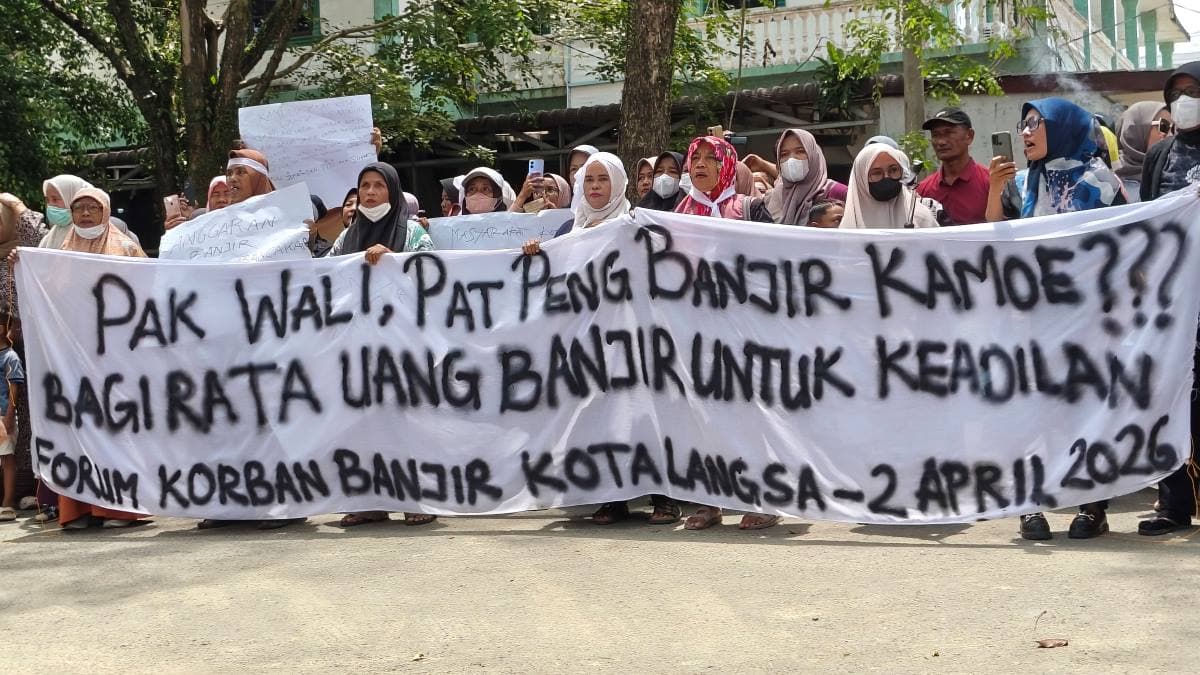 ANGGARAN
BANJIR
MASYARAKAT
PAK WALI, PAT PENG BANJIR KAMOE???
BAGI RATA UANG BANJIR UNTUK KEADILAN
FORUM KORBAN BANJIR KOTA LANGSA - 2 APRIL 2026